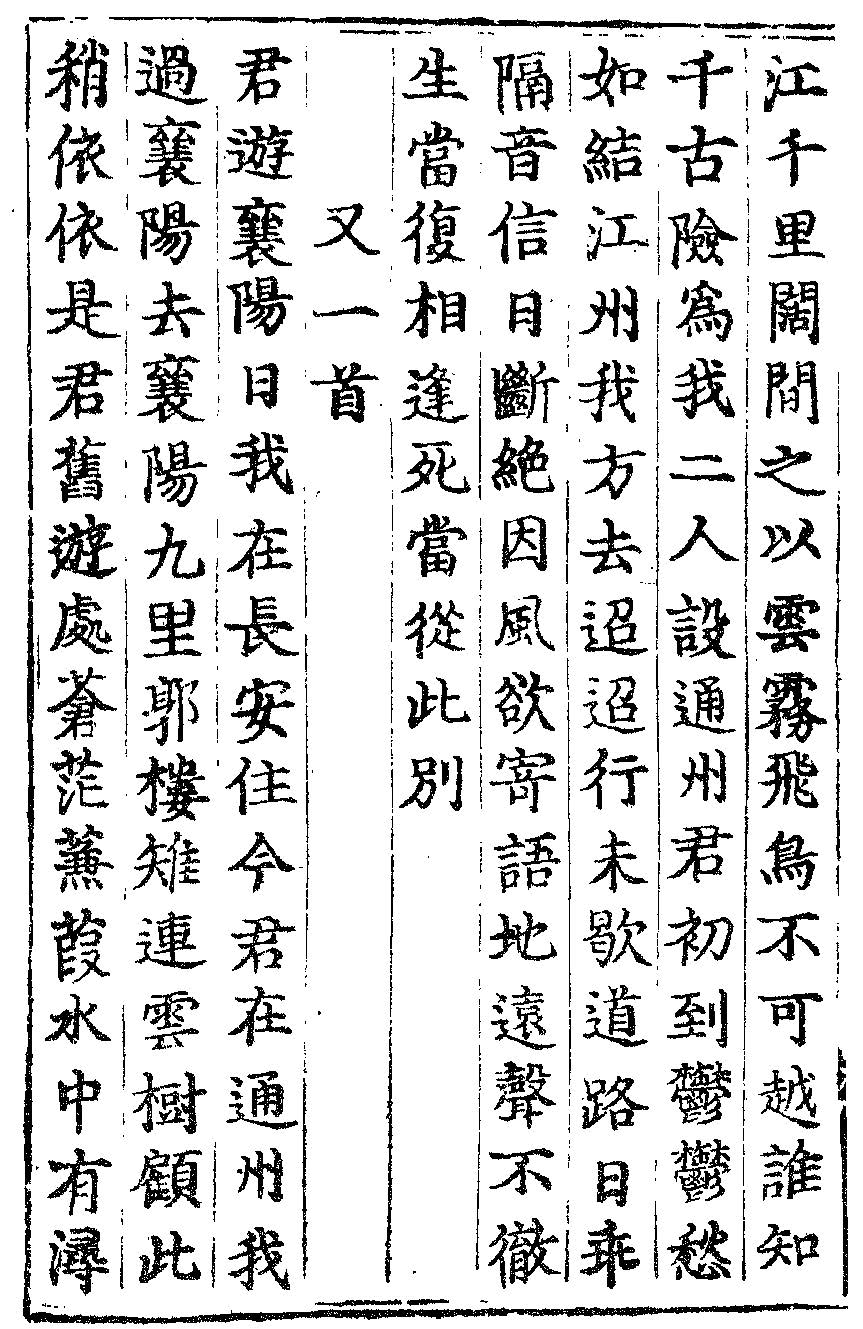 江千里闊間之以雲霧飛鳥不可越誰知
千古險爲我二人設通州君初到鬱鬱愁
如結江州我方去迢迢行未歇道路日乖
隔音信日斷絶因風欲寄語地遠聲不徹
生當復相逢死當從此別
又一首
君遊襄陽日我在長安住今君在通州我
過襄陽去襄陽九里郭樓雉連雲樹顧此
稍依依是君舊遊處蒼茫蒹葭水中有潯